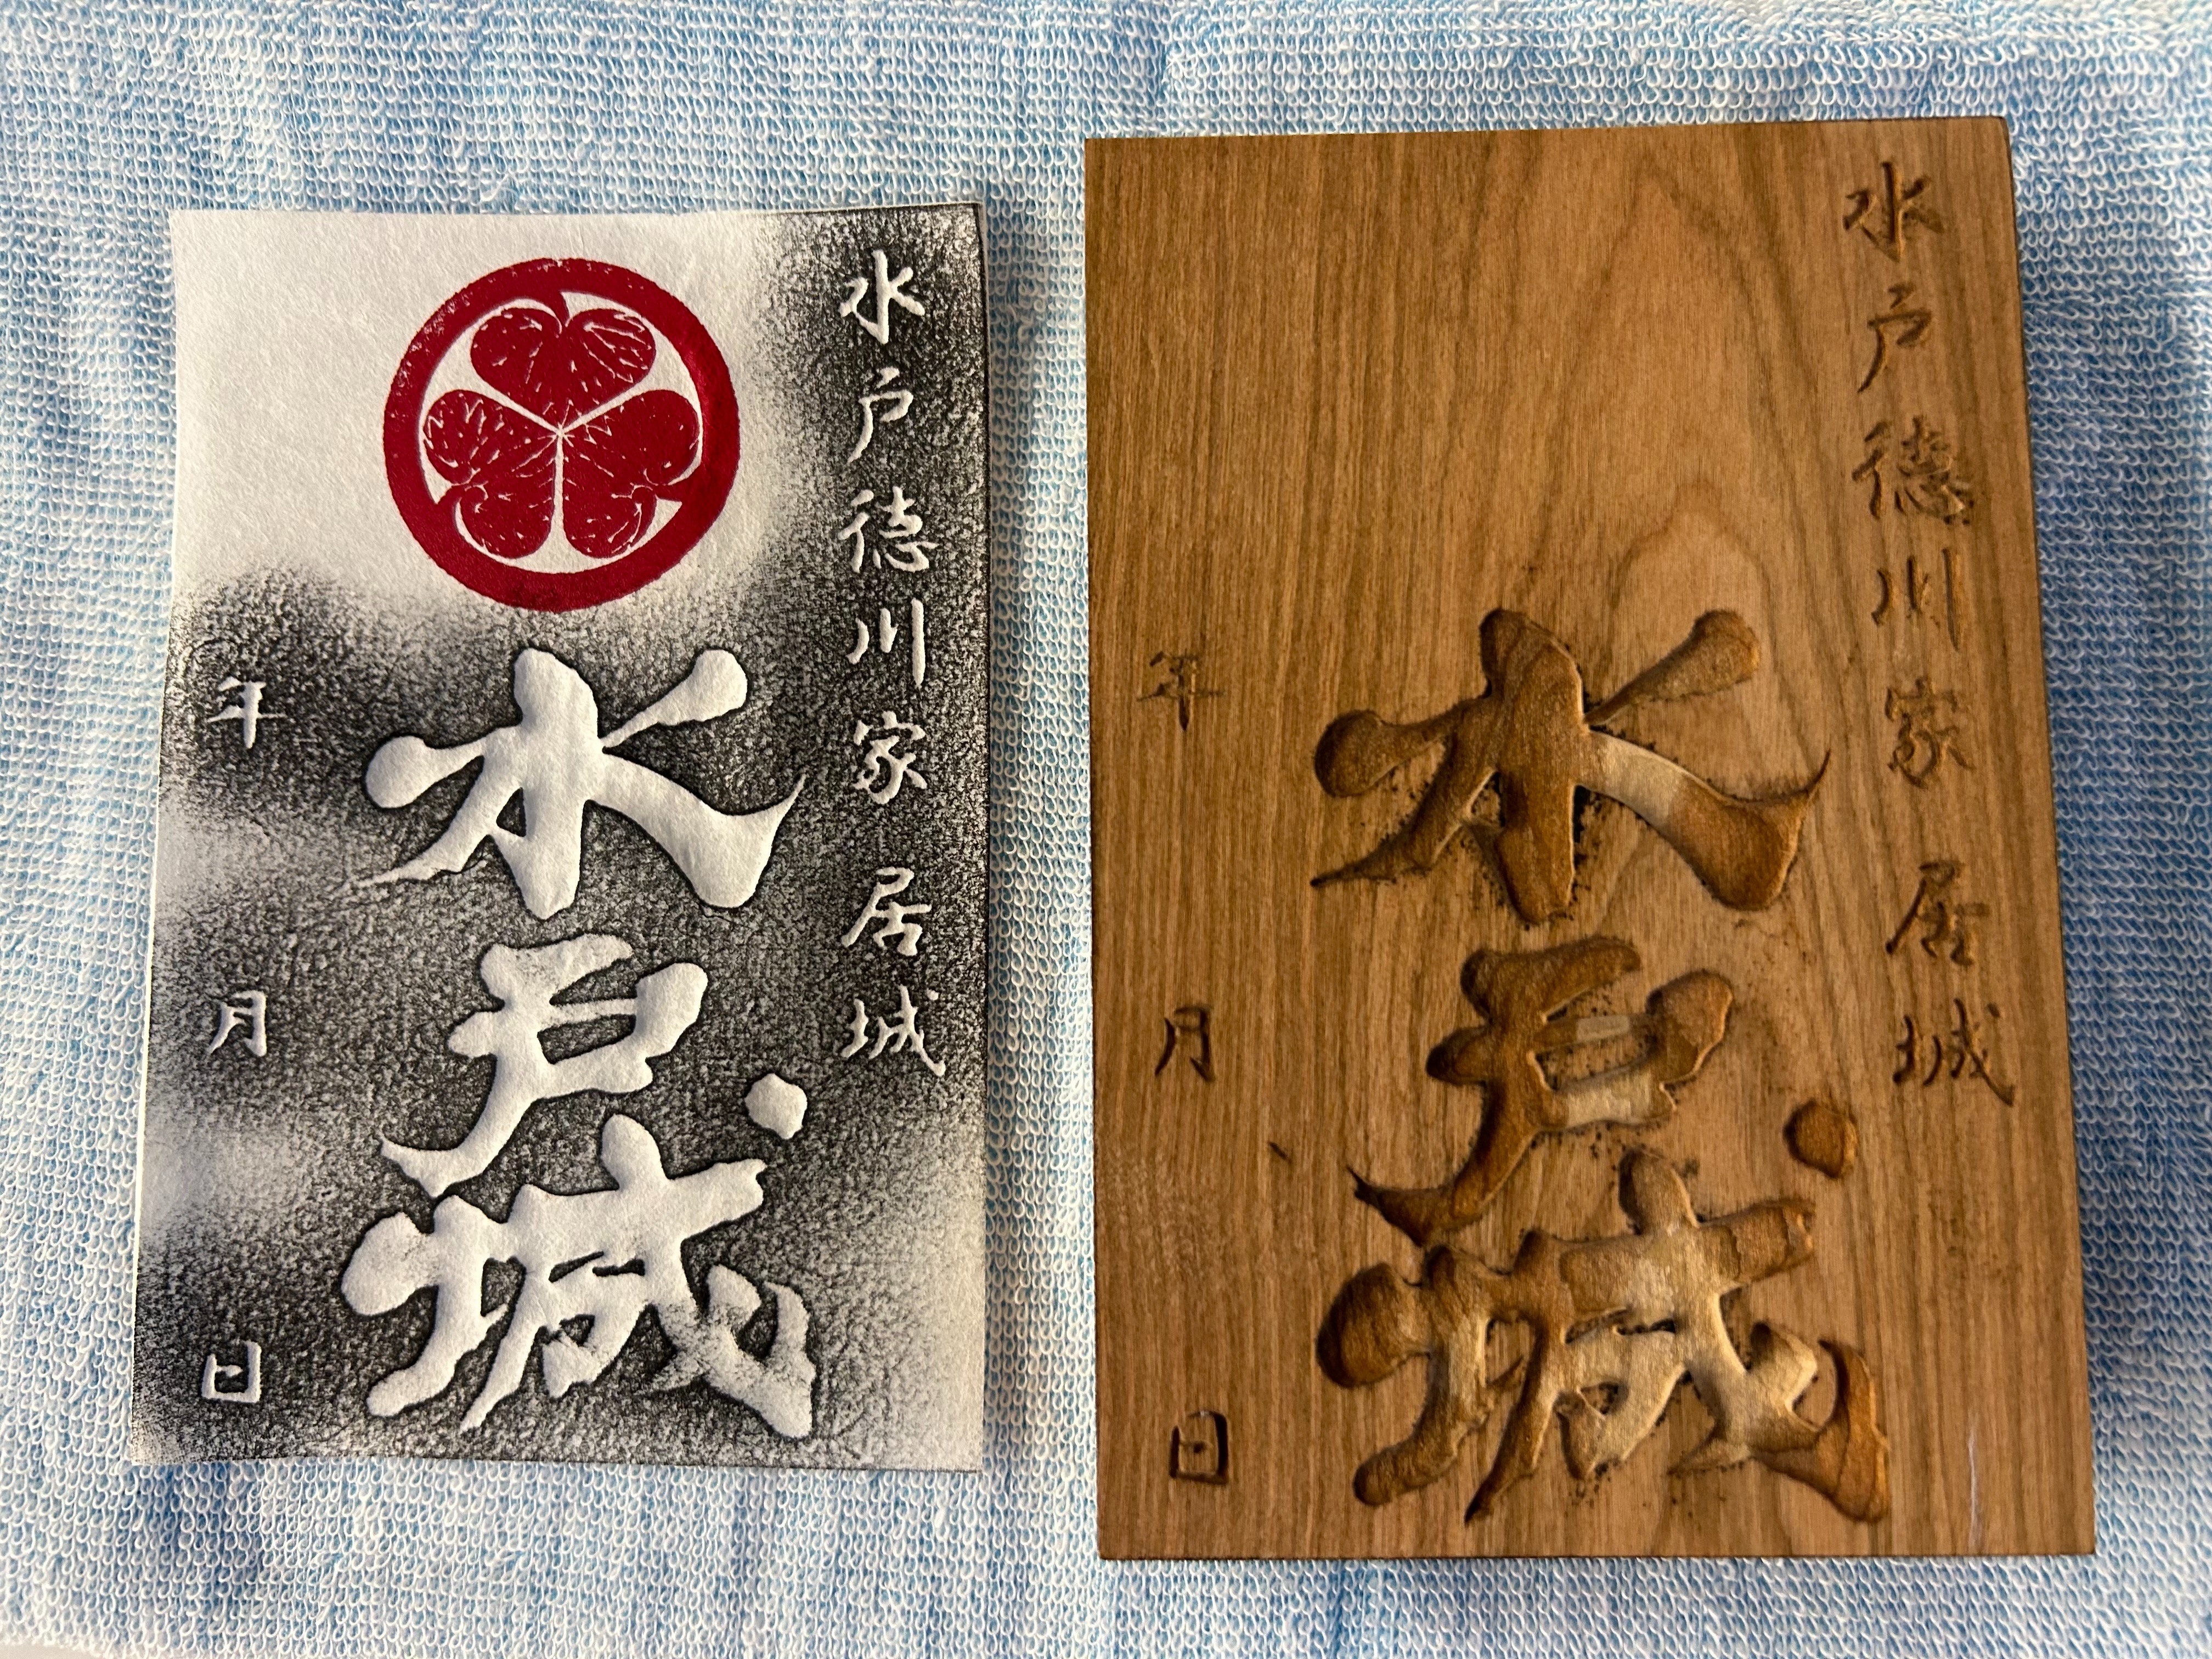 水戸徳川家居城
水戸城
年 月 日
水戸徳川家居城
水戸城
年 月 日